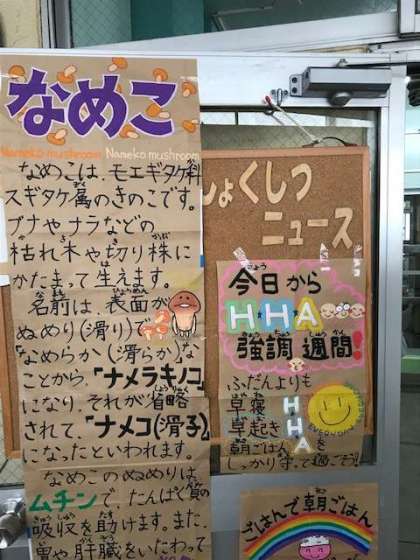 なめこ
Nameko mushroom Nameko mushroom
なめこは、モエギタケ科
スギタケ属のきのこです。
ブナやナラなどの
枯れ木や切り株に
かたまって生えます。
名前は、表面が
ぬめり(滑り)で
なめらか(滑らか)な
ことから、「ナメラキノコ」
になり、それが省略
されて、「ナメコ(滑子)」
になったといわれます。
なめこのぬめりは
ムチンで、たんぱく質の
吸収を助けます。また、
胃や肝臓をいたわって
しょくしつ
ニュース
今日から
HHA
強調週間!
ふだんよりも
早寝 H
早起き H
朝ごはん A を
しっかり守って過ごそう!
ごはんで朝ごはん